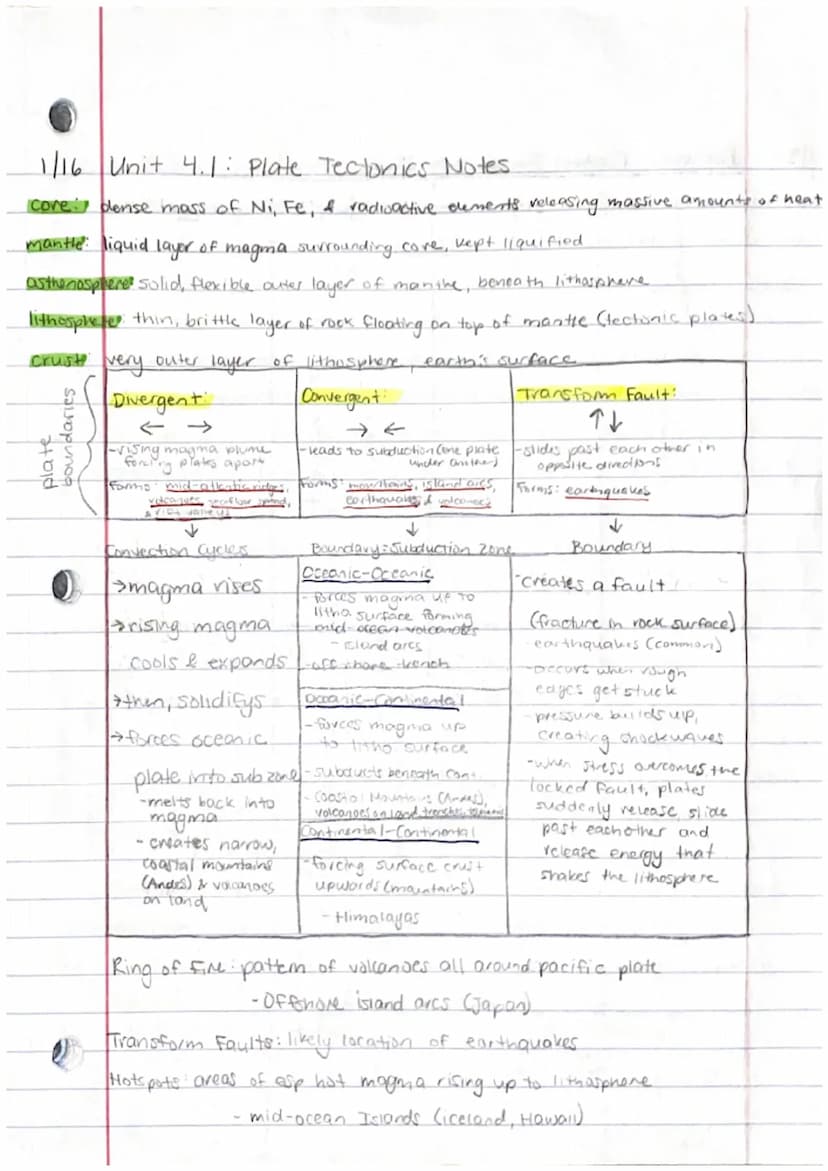 1/16 Unit 4.1: Plate Tectonics Notes
core: dense mass of Ni, Fe, & radioactive elements releasing massive amounts of heat
mantle: liquid layer of magma surrounding core, kept liquified
asthenosphere: solid, flexible outer layer of mantle, beneath lithosphere
lithosphere: thin, brittle layer of rock floating on top of mantle (tectonic plates)
crust: very outer layer of lithosphere, earth's surface
plate
boundaries
Divergent:
← →
-rising magma plume
forcing plates apart
Forms: mid-atlantic ridges,
volcanoes, seafloor spread,
& rift valleys
Convergent:
→ ←
-leads to subduction (one plate
under another)
Forms: mountains, island arcs,
earthquakes & volcanoes
Transform Fault:
↑↓
-slides past each other in
opposite directions
Forms: earthquakes
↓
Convection Cycles
→magma rises
→rising magma
cools & expands
→then, solidifys
→forces oceanic
plate into sub zone
-melts back into
magma
- creates narrow,
coastal mountains
(Andes) & volcanoes
on land
↓
Boundary: Subduction Zone
Oceanic-Oceanic
- forces magma up to
litho surface forming
mid-ocean volcanoes
- island arcs
-off shore trench
Oceanic-Continental
-forces magma up
to litho surface
-subducts beneath cont.
-Coastal Mountains (Andes),
volcanoes on land, trenches, tsunamis
Continental-Continental
-forcing surface crust
upwards (mountains)
- Himalayas
↓
Boundary
-creates a fault
(fracture in rock surface)
- earthquakes (common)
-occurs when rough
edges get stuck
-pressure builds up,
creating shockwaves
-when stress overcomes the
locked fault, plates
suddenly release, slide
past eachother and
release energy that
shakes the lithosphere
Ring of Fire: pattern of volcanoes all around pacific plate
-Offshore island arcs (Japan)
Transform Faults: likely location of earthquakes
Hotspots: areas of esp hot magma rising up to lithosphere
- mid-ocean Islands (iceland, Hawaii)